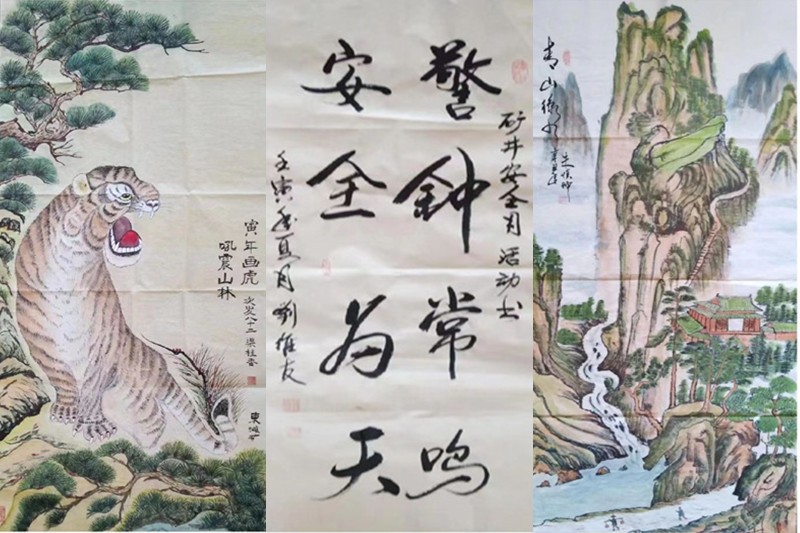 寅年画虎
吼震山林
警钟常鸣
安全为天
矿井安全月活动书
壬寅年夏月刘维友
青山绿水